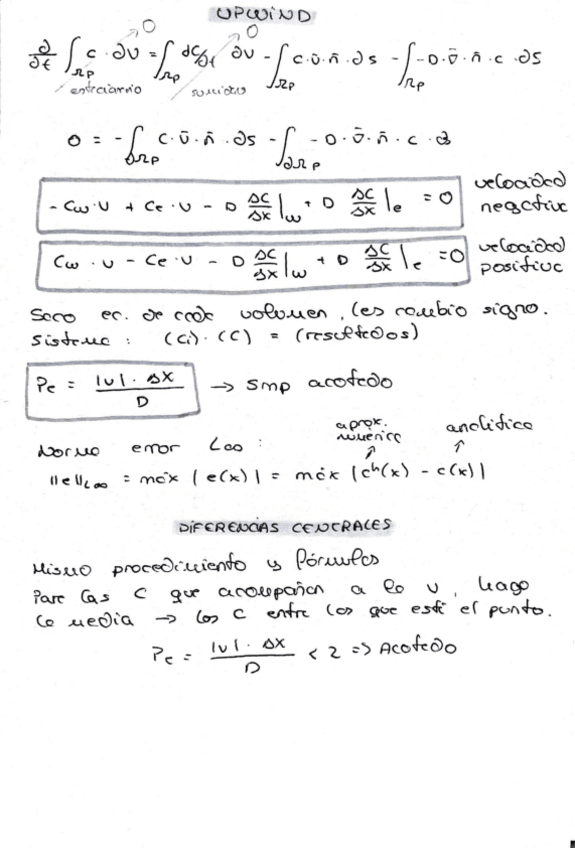 UPWIND
∂/∂t ∫_Ωp c · ∂V = ∫_Ωp dc/dt ∂V - ∫_Ωp c · v̄ · n̄ · ∂s - ∫_Ωp -D · v̄ · n̄ · c · ∂S
0 0
estacionario
0 = - ∫_∂Ωp c · v̄ · n̄ · ∂s - ∫_∂Ωp - D · v̄ · n̄ · c · ∂
- Cw · v + Ce · v - D ΔC/Δx |w + D ΔC/Δx |e = 0 velocidad negativa
Cw · v - Ce · v - D ΔC/Δx |w + D ΔC/Δx |e = 0 velocidad positiva
Saco ec. de cada volumen, les cambio signo.
Sistema : (Ci) · (C) = (resultados)
Pe = |v| · Δx / D → Smp acotado
Norma error L∞ :
aprox. numérica analítica
||e||L∞ = máx |e(x)| = máx |c^h(x) - c(x)|
DIFERENCIAS CENTRALES
Mismo procedimiento y fórmulas
Para las C que acompañan a la v, hago
la media → los C entre los que esté el punto.
Pe = |v| · Δx / D < 2 => Acotado